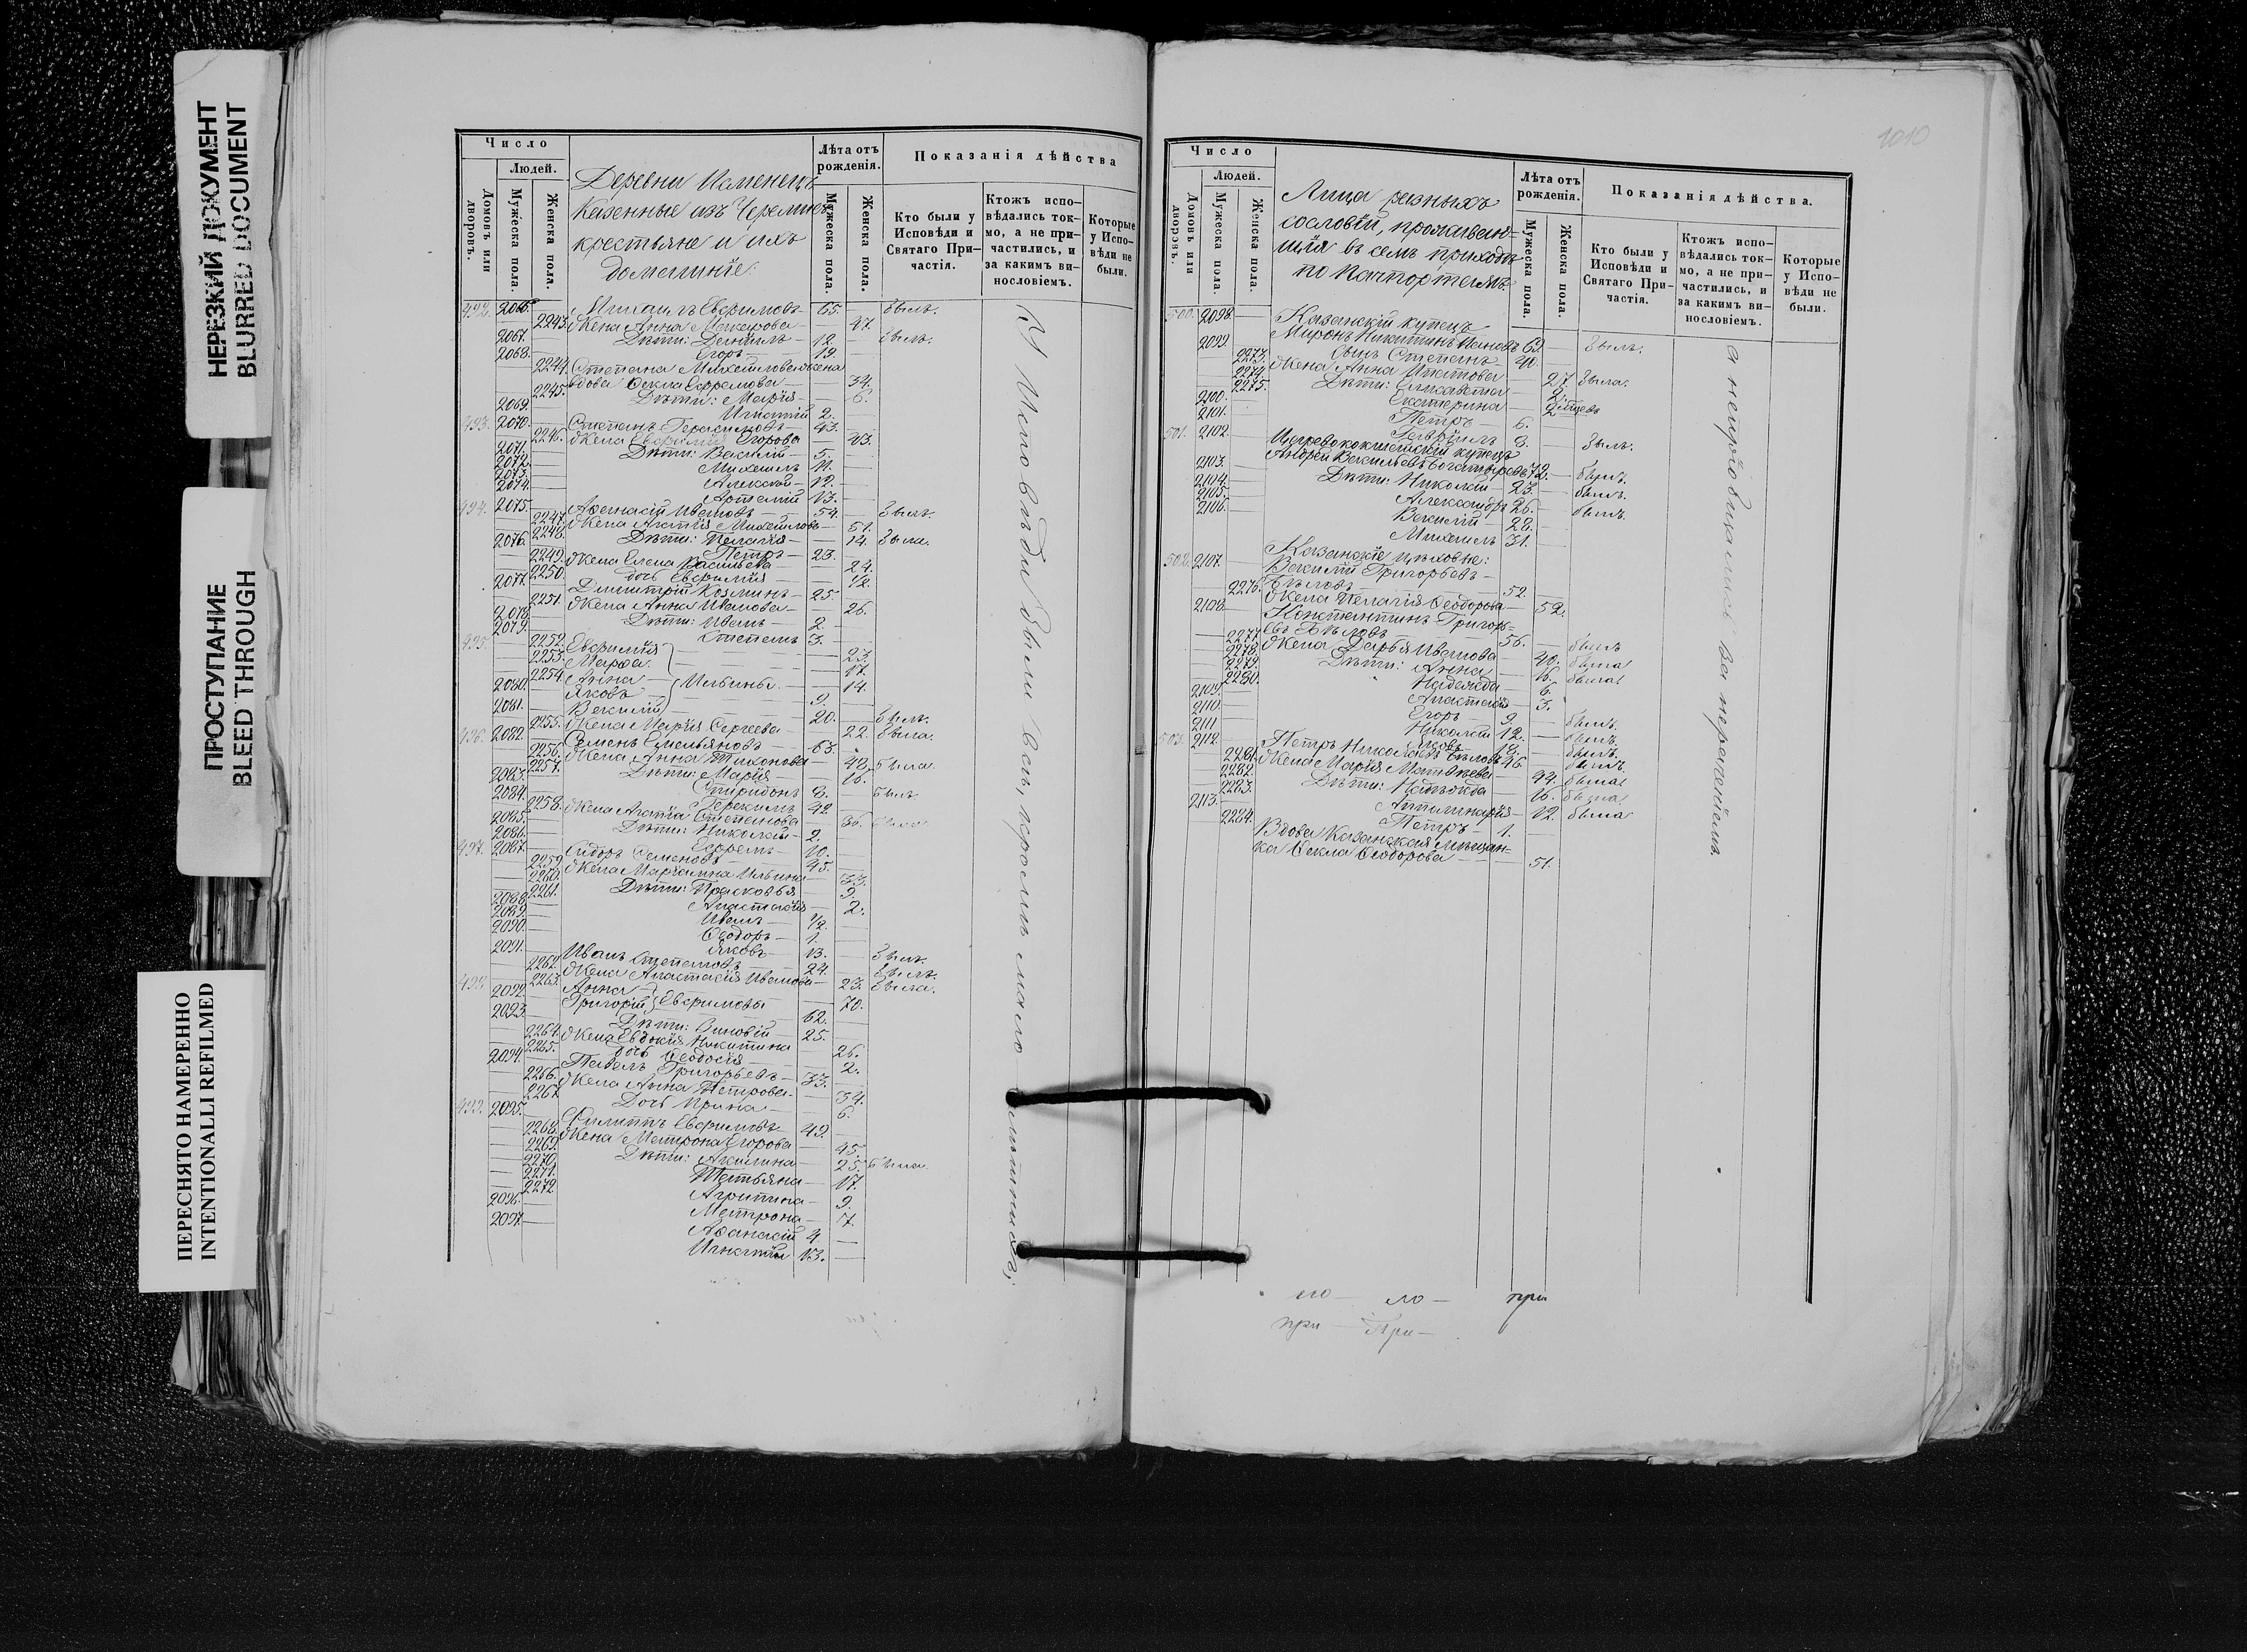 НЕРЕЗКИЙ ДОКУМЕНТ
BLURRED DOCUMENT
ПРОСТУПАНИЕ
BLEED THROUGH
ПЕРЕСНЯТО НАМЕРЕННО
INTENTIONALLI REFILMED
Число
Людей.
Домовъ или дворовъ.
Мужеска пола.
Женска пола.
Деревни
Казенные изъ Черемисъ
крестьяне и ихъ
домашніе:
Лѣта отъ рожденія.
Мужеска пола.
Женска пола.
Показанія дѣйства
Кто были у Исповѣди и Святаго Причастія.
Ктожъ исповѣдались токмо, а не причастились, и за какимъ винословіемъ.
Которые у Исповѣди не были.
492. 2066. Михаилъ Евфимовъ 65. былъ.
2243. Жена Анна Макарова 47.
2067. Дѣти: Даніилъ 12. былъ.
2068. Егоръ 19.
2244. Степана Михайлова жена
вдова Фекла Ефремова 34.
2245. Дѣти: Марія 6.
2069. Игнатій 2.
493. 2070. Степанъ Герасимовъ 43.
2246. Жена Евфимія Егорова 43.
2071. Дѣти: Василій 5.
2072. Михаилъ 11.
2073. Алексѣй 12.
2074. Артемій 13.
494. 2075. Афанасій Ивановъ 54. былъ.
2247. Жена Агафія Михайлова 51.
2248. Дѣти: Пелагія 14. была.
2076. Петръ 23.
2249. Жена Елена Васильева 24.
2250. дочь Евфимія 1/2.
2077. Димитрій Козминъ 25.
2251. Жена Анна Иванова 26.
2078. Дѣти: Иванъ 2.
2079. Степанъ 3.
495. 2252. Евфимія 23.
2253. Марфа 17.
2254. Анна Ильины 14.
2080. Яковъ 9.
2081. Василій 20. былъ.
2255. Жена Марія Сергеева 22. была.
496. 2082. Семенъ Емельяновъ 63.
2256. Жена Анна Тихонова 48. была.
2257. Дѣти: Марія 16.
2083. Спиридонъ 8. былъ
2084. Герасимъ 42.
2258. Жена Агафія Степанова 36.
2085. Дѣти: Николай 2.
2086. Ефремъ 10.
497. 2087. Сидоръ Семеновъ 45.
2259. Жена Маріамна Ильина 33.
2260. Дѣти: Прасковья 9.
2261. Анастасія 2.
2088. Иванъ 1/2.
2089. Феодоръ 1.
2090. Яковъ 13. былъ.
2091. Иванъ Степановъ 24. былъ.
2262. Жена Анастасія Иванова 23. была.
498. 2263. Анна 70.
2092. Григорій Евфимовы 62.
2093. Дѣти: Зиновій 25.
2264. Жена Евдокія Никитина 26.
2265. дочь Феодосія 2.
2094. Павелъ Григорьевъ 33.
2266. Жена Анна Петрова 34.
2267. Дочь Ирина 6.
499. 2095. Филиппъ Евфимовъ 49.
2268. Жена Матрона Егорова 45.
2269. Дѣти: Акилина 25. была.
2270. Татьяна 17.
2271. Агрипина 9.
2272. Матрона 7.
2096. Афанасій 4
2097. Игнатій 13.
У Исповѣди были всѣ, кромѣ мало
1010
Число
Людей.
Домовъ или дворовъ.
Мужеска пола.
Женска пола.
Лица разныхъ
сословій, проживаю-
щія въ семъ приходѣ
по паспортамъ.
Лѣта отъ рожденія.
Мужеска пола.
Женска пола.
Показанія дѣйства.
Кто были у Исповѣди и Святаго Причастія.
Ктожъ исповѣдались токмо, а не причастились, и за какимъ винословіемъ.
Которые у Исповѣди не были.
500. 2098. Казанскій купецъ
Миронъ Никитинъ 69. былъ.
2099. Сынъ Степанъ 40.
2273. Жена Анна Игнатова 27. была.
2274. Дѣти: Елисавета 2.
2275. Екатерина
2100. Петръ 6.
2101. Гавріилъ 8. былъ.
501. 2102. Царевококшайскій купецъ
Андрей Васильевъ Богатыревъ 72. былъ.
2103. Дѣти: Николай 23. былъ.
2104. Александръ 26. былъ.
2105. Василій 28.
2106. Михаилъ 31.
Казанскіе цѣховые:
502. 2107. Василій Григорьевъ
Бѣловъ 52.
2276. Жена Пелагія Феодорова 52.
2108. Константинъ Григорь-
евъ Бѣловъ 56. былъ
2277. Жена Дарья Иванова 40. была
2278. Дѣти: Анна 16. была
2279. Надежда 6.
2280. Анастасія 3.
2109. Егоръ 9. былъ.
2110. Николай 12. былъ.
2111. Яковъ 18. былъ
503. 2112. Петръ Николаевъ Бѣловъ 46. былъ
2281. Жена Марія Матвѣева 44. была
2282. Дѣти: Надежда 16. была
2283. Аполинарія 12. была
2113. Петръ 1.
2284. Вдова Казанская мѣщан-
ка Фекла Феодорова 51.
а непріобщались за нераченіемъ
по— ло— при
при — При —